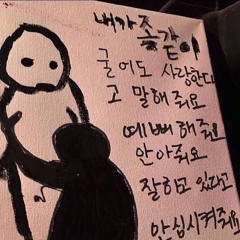 내가 좆같이
굴어도 사랑한다
고 말해 줘요
예뻐해줘요
안아줘요
잘하고 있다고
안심시켜줘요